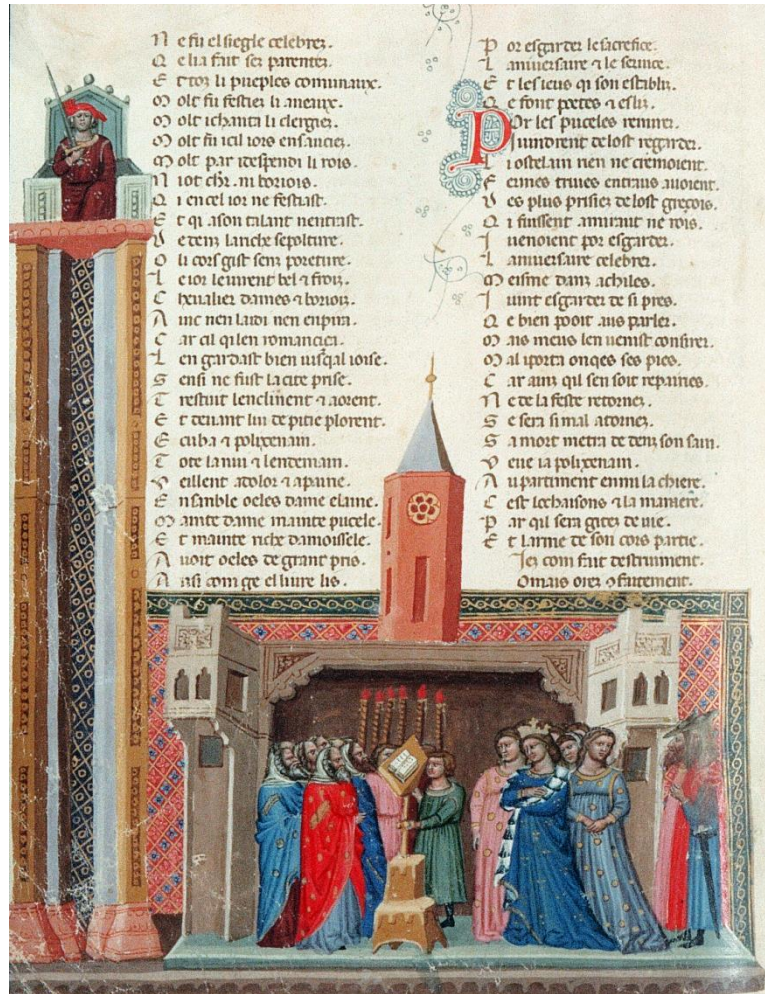 N e fu el siegle celebrez.
Q e li a fait sez parentez
E t toz li pueples comunaux.
M olt fu festiez li aneaux.
M olt i chanta li clergiez
M olt fu icil iors ensauciez
M olt par i despendi li rois.
N i ot chr. ni boriois.
Q i en cel ior ne festiast.
E t qi a son talant n entrast.
V e denz la riche sepolture.
O li cors gist senz poreture.
L e ior le uirent bel & froiz.
C heualier dames & borioiz.
A inc nen laidi nen enpira.
C ar cil qi len romancica.
L en gardast bien iusqal ioise.
S ensi ne fust la cite prise.
T restuit lenclinent & aorent.
E t deuant lui de pitie plorent.
E cuba & polixenain.
T ote la nuit & lendemain.
V eillent a dolor & a paine.
E nsamble oeles dame elaine.
M ainte dame mainte pucele.
E t mainte riche damoissele.
A uoit oeles de grant pris.
A insi com ge el liure lis.
P or esgarder le sacrefice.
L anniuersaire & le seruice.
E t les ieus qi son establiz.
Q e font poetes & esliz.
P or les puceles remirer.
I uindrent de lost regarder.
L i ostelain rien ne cremoient.
F ermes triues entraus auoient.
D es plus prisiez de lost greçois.
Q i fussent amiraut ne rois.
I uenoient por esgarder.
L anniuersaire celebrer.
M eisme danz achiles.
I uint esgarder de si pres.
Q e bien pooit aus parler.
M ais meus len uenist consirer.
M al i porta onqes ses pies.
C ar ainz qil sen soit repairies.
N e de la feste retornez.
S e sera si mal atornez.
S a mort metra dedenz son sain.
V eue ia polixenain.
A upartiment enmi la chiere.
C est lochaisons & la maniere.
P ar qi sera gitez de uie.
E t larme de son cors partie.
Iez com fait destruiment.
Omais orez & faitement.